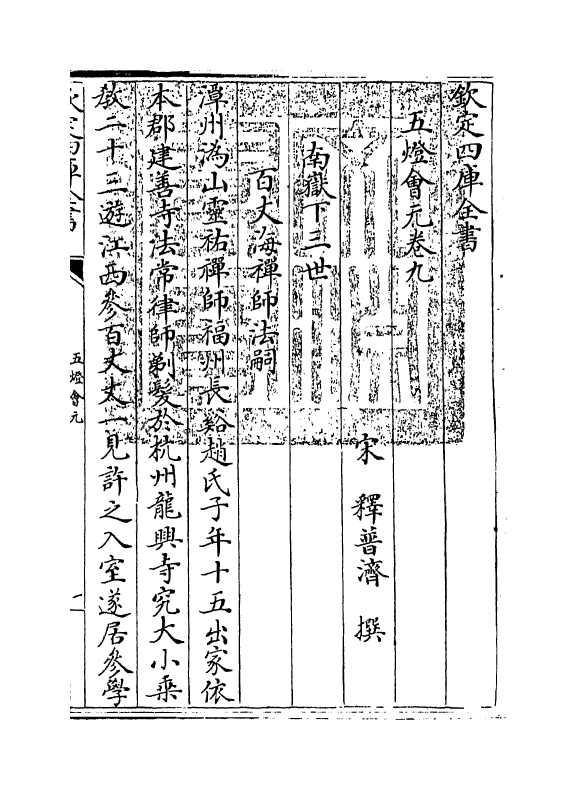 欽定四庫全書
五燈會元卷九
宋 釋普濟 撰
南嶽下三世
百丈海禪師法嗣
潭州溈山靈祐禪師福州長谿趙氏子年十五出家依
本郡建善寺法常律師剃髮於杭州龍興寺究大小乘
教二十三遊江西參百丈丈一見許之入室遂居參學
欽定四庫全書
五燈會元